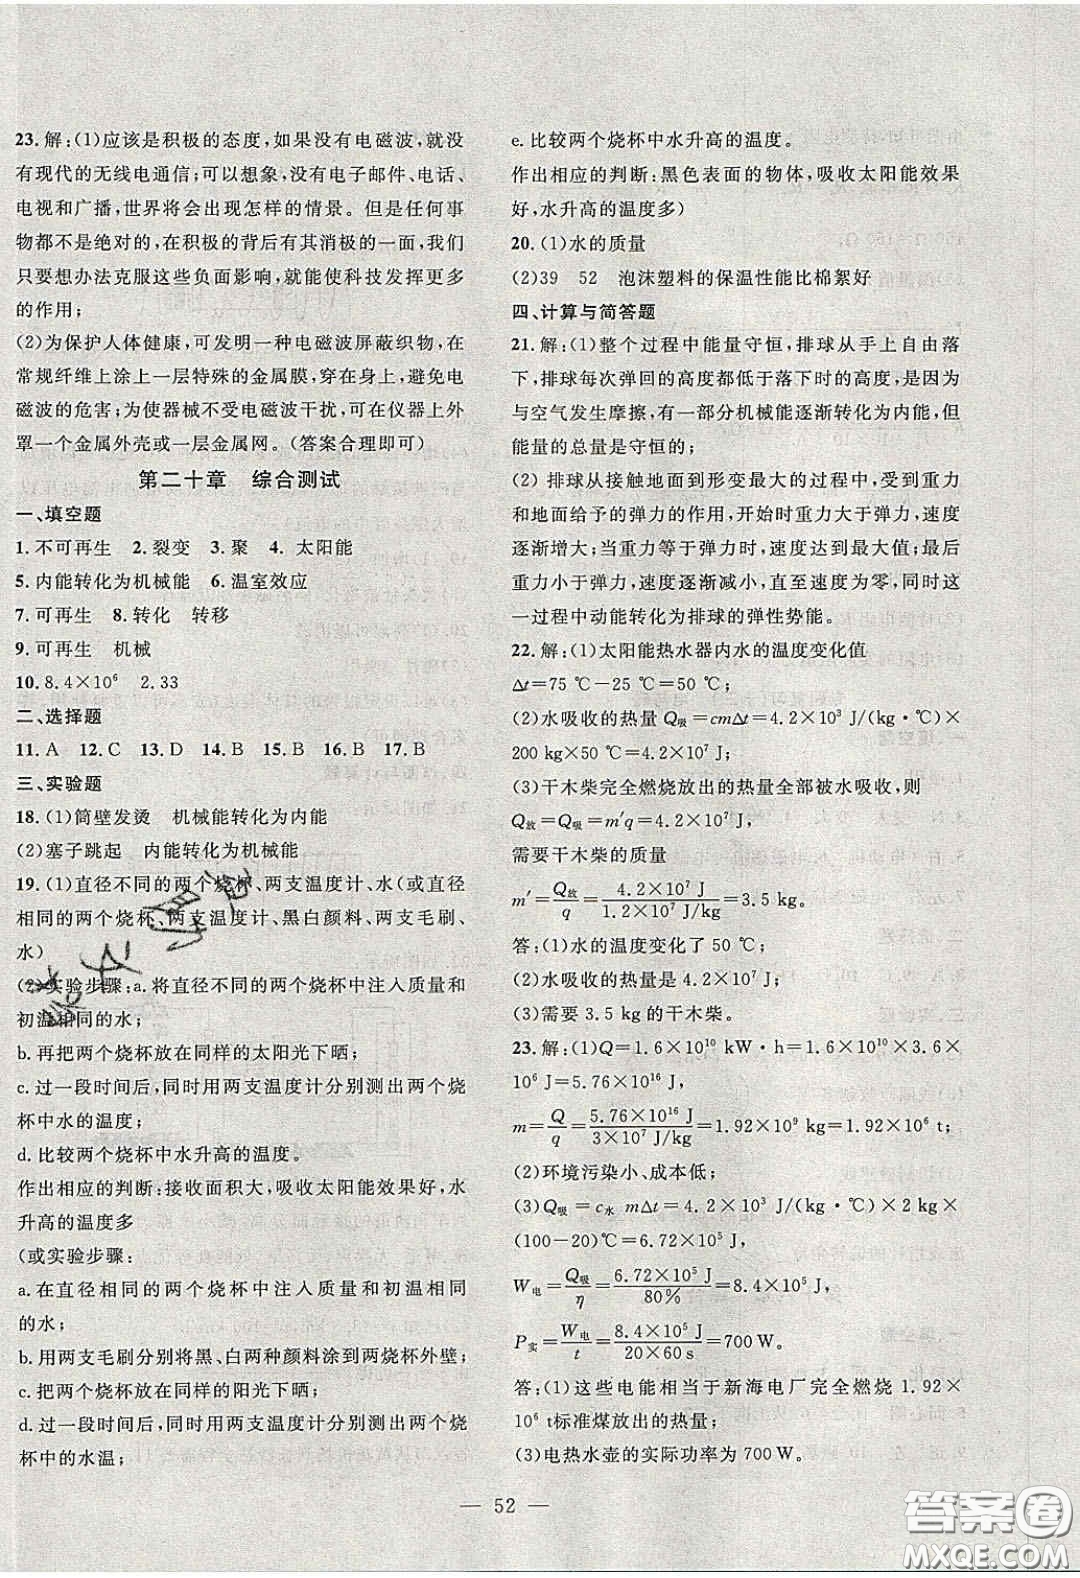 23.解:(1)应该是积极的态度,如果没有电磁波,就没
有现代的无线电通信;可以想象,没有电子邮件、电话、
电视和广播,世界将会出现怎样的情景。但是任何事
物都不是绝对的,在积极的背后有其消极的一面,我们
只要想办法克服这些负面影响,就能使科技发挥更多
的作用;
(2)为保护人体健康,可发明一种电磁波屏蔽织物,在
常规纤维上涂上一层特殊的金属膜,穿在身上,避免电
磁波的危害;为使器械不受电磁波干扰,可在仪器上外
罩一个金属外壳或一层金属网。(答案合理即可)
第二十章 综合测试
一、填空题
1.不可再生 2.裂变 3.聚 4.太阳能
5.内能转化为机械能 6.温室效应
7.可再生 8.转化 转移
9.可再生 机械
10.8.4×10⁶ 2.33
二、选择题
11.A 12.C 13.D 14.B 15.B 16.B 17.B
三、实验题
18.(1)筒壁发烫 机械能转化为内能
(2)塞子跳起 内能转化为机械能
19.(1)直径不同的两个烧杯、两支温度计、水(或直径
相同的两个烧杯、两支温度计、黑白颜料、两支毛刷、
水)
(2)实验步骤:a.将直径不同的两个烧杯中注入质量和
初温相同的水;
b.再把两个烧杯放在同样的太阳光下晒;
c.过一段时间后,同时用两支温度计分别测出两个烧
杯中水的温度;
d.比较两个烧杯中水升高的温度。
作出相应的判断:接收面积大,吸收太阳能效果好,水
升高的温度多
(或实验步骤:
a.在直径相同的两个烧杯中注入质量和初温相同
的水;
b.用两支毛刷分别将黑、白两种颜料涂到两烧杯外壁;
c.再把两个烧杯放在同样的阳光下晒;
d.过一段时间后,同时用两支温度计分别测出两个烧
杯中的水温;
e.比较两个烧杯中水升高的温度。
作出相应的判断:黑色表面的物体,吸收太阳能效果
好,水升高的温度多)
20.(1)水的质量
(2)39 52 泡沫塑料的保温性能比棉絮好
四、计算与简答题
21.解:(1)整个过程中能量守恒,排球从手上自由落
下,排球每次弹回的高度都达不到落下时的高度,是因为
与空气发生摩擦,有一部分机械能逐渐转化为内能,但
能量的总量是守恒的;
(2)排球从接触地面到形变最大的过程中,受到重力
和地面给予的弹力的作用,开始时重力大于弹力,速度
逐渐增大;当重力等于弹力时,速度达到最大值;最后
重力小于弹力,速度逐渐减小,直至速度为零,同时这
一过程中动能转化为排球的弹性势能。
22.解:(1)太阳能热水器内水的温度变化值
Δt=75 ℃-25 ℃=50 ℃;
(2)水吸收的热量Q吸=cmΔt=4.2×10³ J/(kg·℃)×
200 kg×50 ℃=4.2×10⁷ J;
(3)干木柴完全燃烧放出的热量全部被水吸收,则
Q放=Q吸=m′q=4.2×10⁷ J,
需要干木柴的质量
m′=Q放/q=4.2×10⁷ J/1.2×10⁷ J/kg=3.5 kg。
答:(1)水的温度变化了50 ℃;
(2)水吸收的热量=4.2×10⁷ J;
(3)需要3.5 kg的干木柴。
23.解:(1)Q=1.6×10¹⁰ kW·h=1.6×10¹⁰×3.6×
10⁶ J=5.76×10¹⁶ J,
m=Q/q=5.76×10¹⁶ J/3×10⁷ J/kg=1.92×10⁹ kg=1.92×10⁶ t;
(2)环境污染小、成本低;
(3)Q吸=c水mΔt=4.2×10³ J/(kg·℃)×2 kg×
(100-20)℃=6.72×10⁵ J,
W电=Q吸/η=6.72×10⁵ J/80%=8.4×10⁵ J,
P实=W电/t=8.4×10⁵ J/20×60 s=700 W。
答:(1)这些电能相当于新海电厂完全燃烧1.92×
10⁶ t标准煤放出的热量;
(3)电热水壶的实际功率为700 W。
— 52 —
答案圈
MXQE.COM